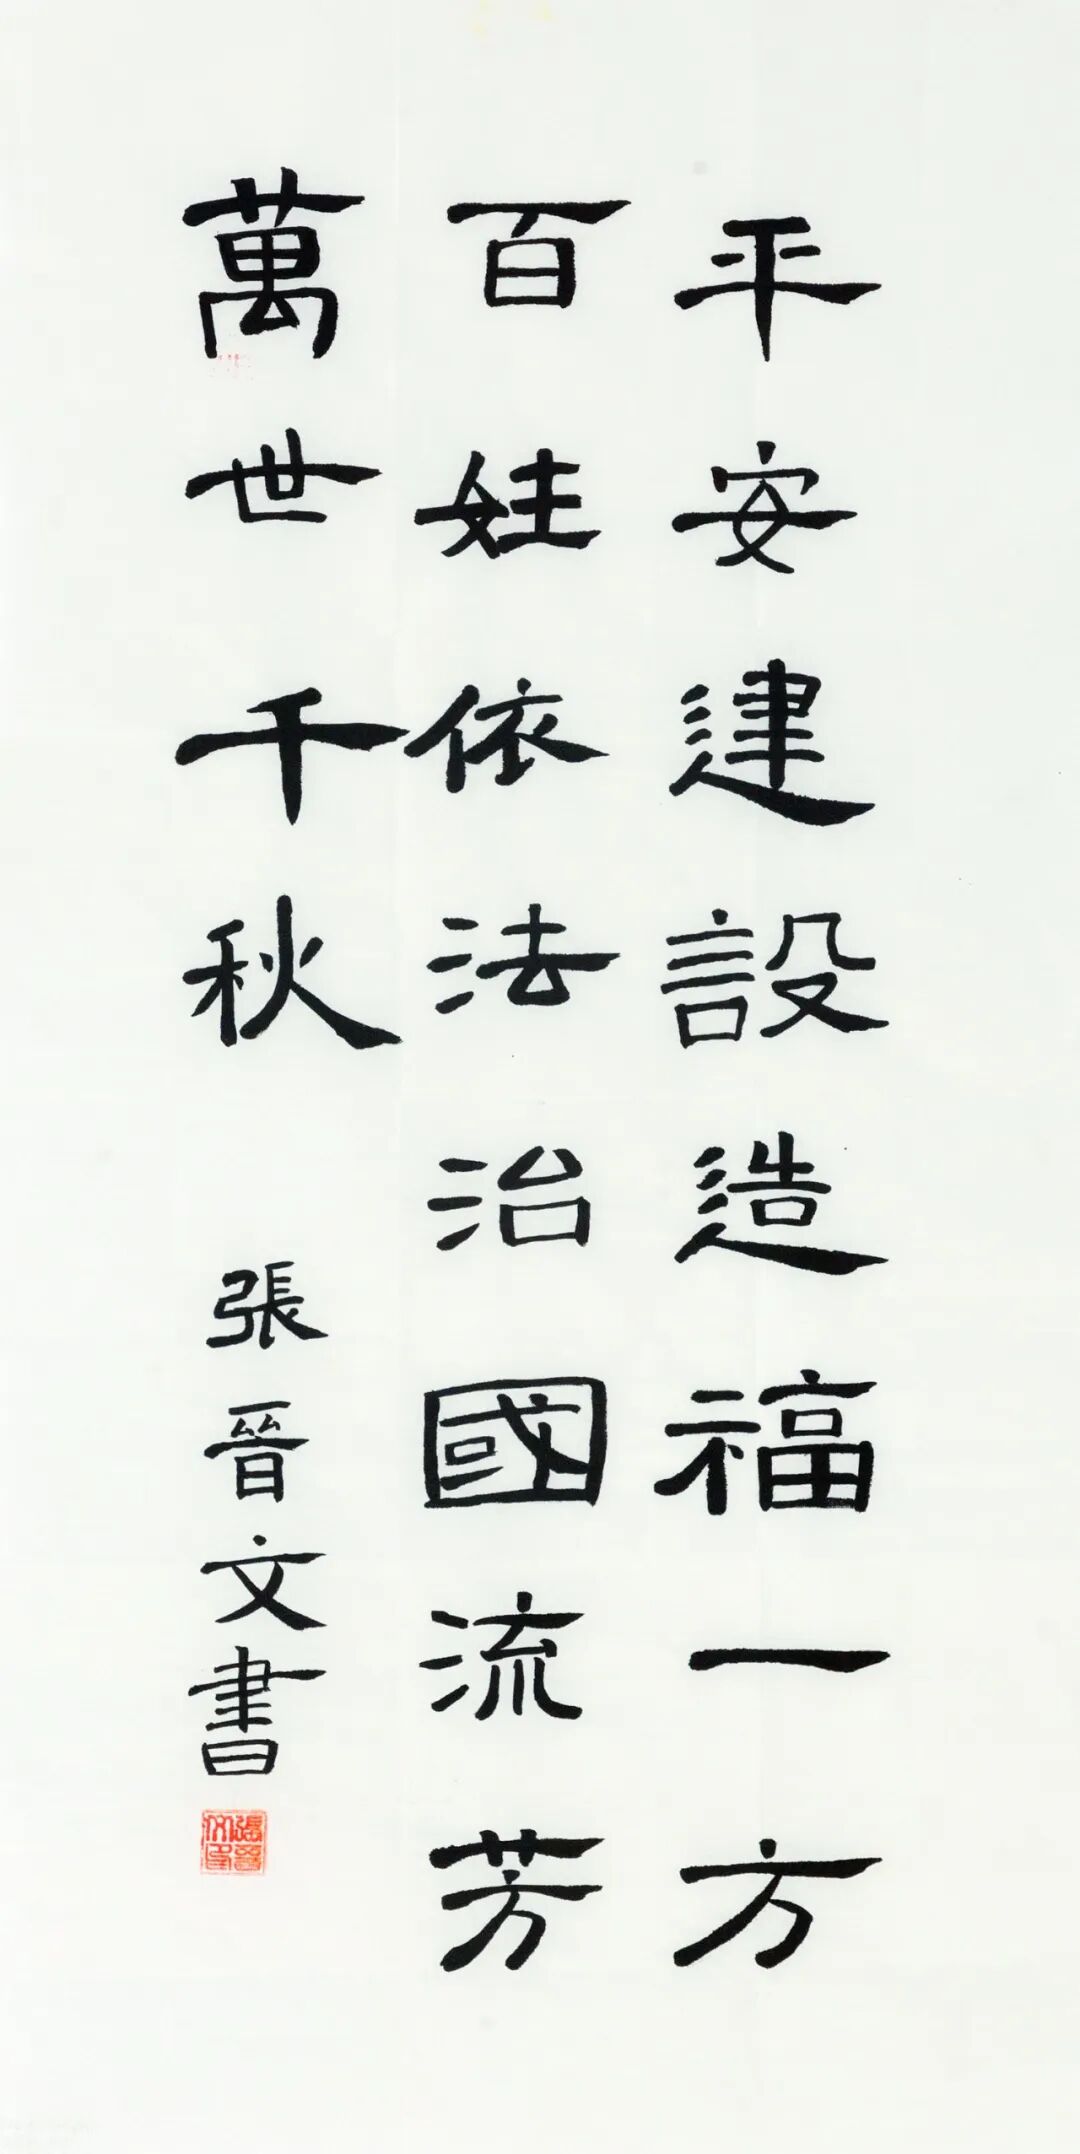 平安建設造福一方
百姓依法治國流芳
萬世千秋
張晉文書